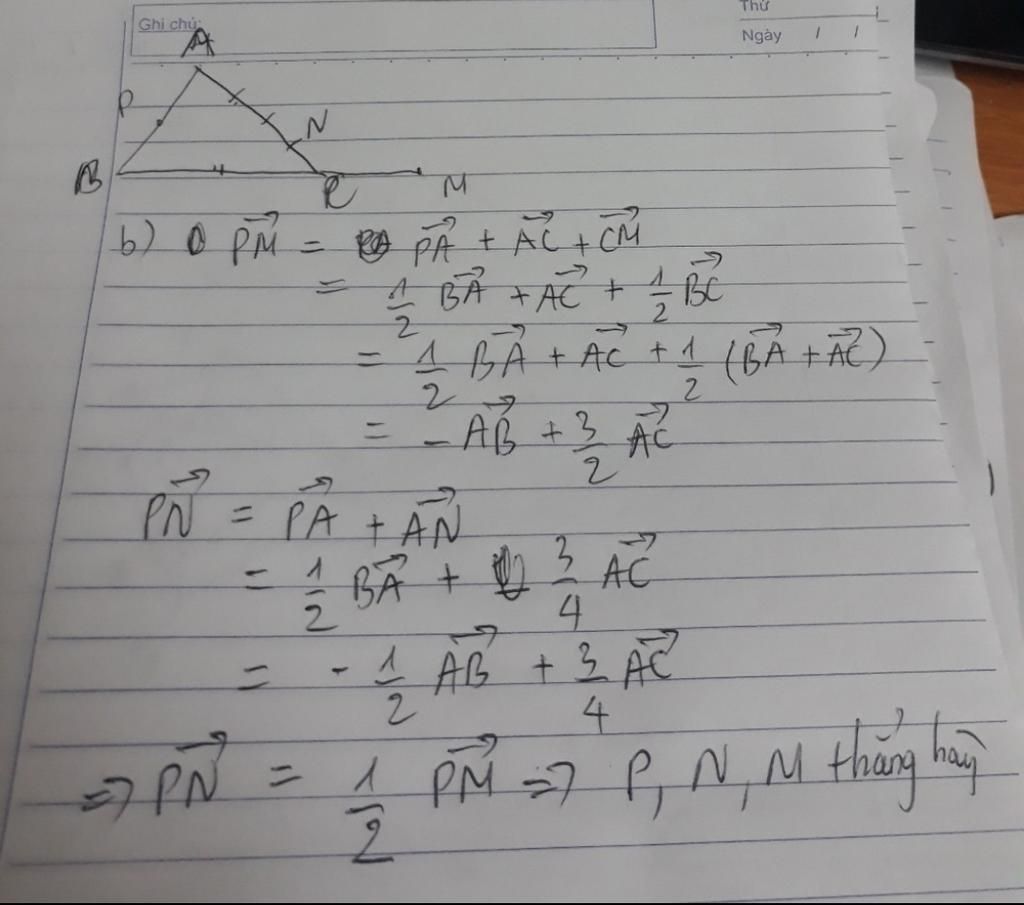 Ghi chú:
Thứ
Ngày / /
A
P
N
B
C
M
b) PM→ = PA→ + AC→ + CM→
= 1/2 BA→ + AC→ + 1/2 BC→
= 1/2 BA→ + AC→ + 1/2 (BA→ + AC→)
= - AB→ + 3/2 AC→
PN→ = PA→ + AN→
= 1/2 BA→ + 3/4 AC→
= - 1/2 AB→ + 3/4 AC→
=> PN→ = 1/2 PM→ => P, N, M thẳng hàng